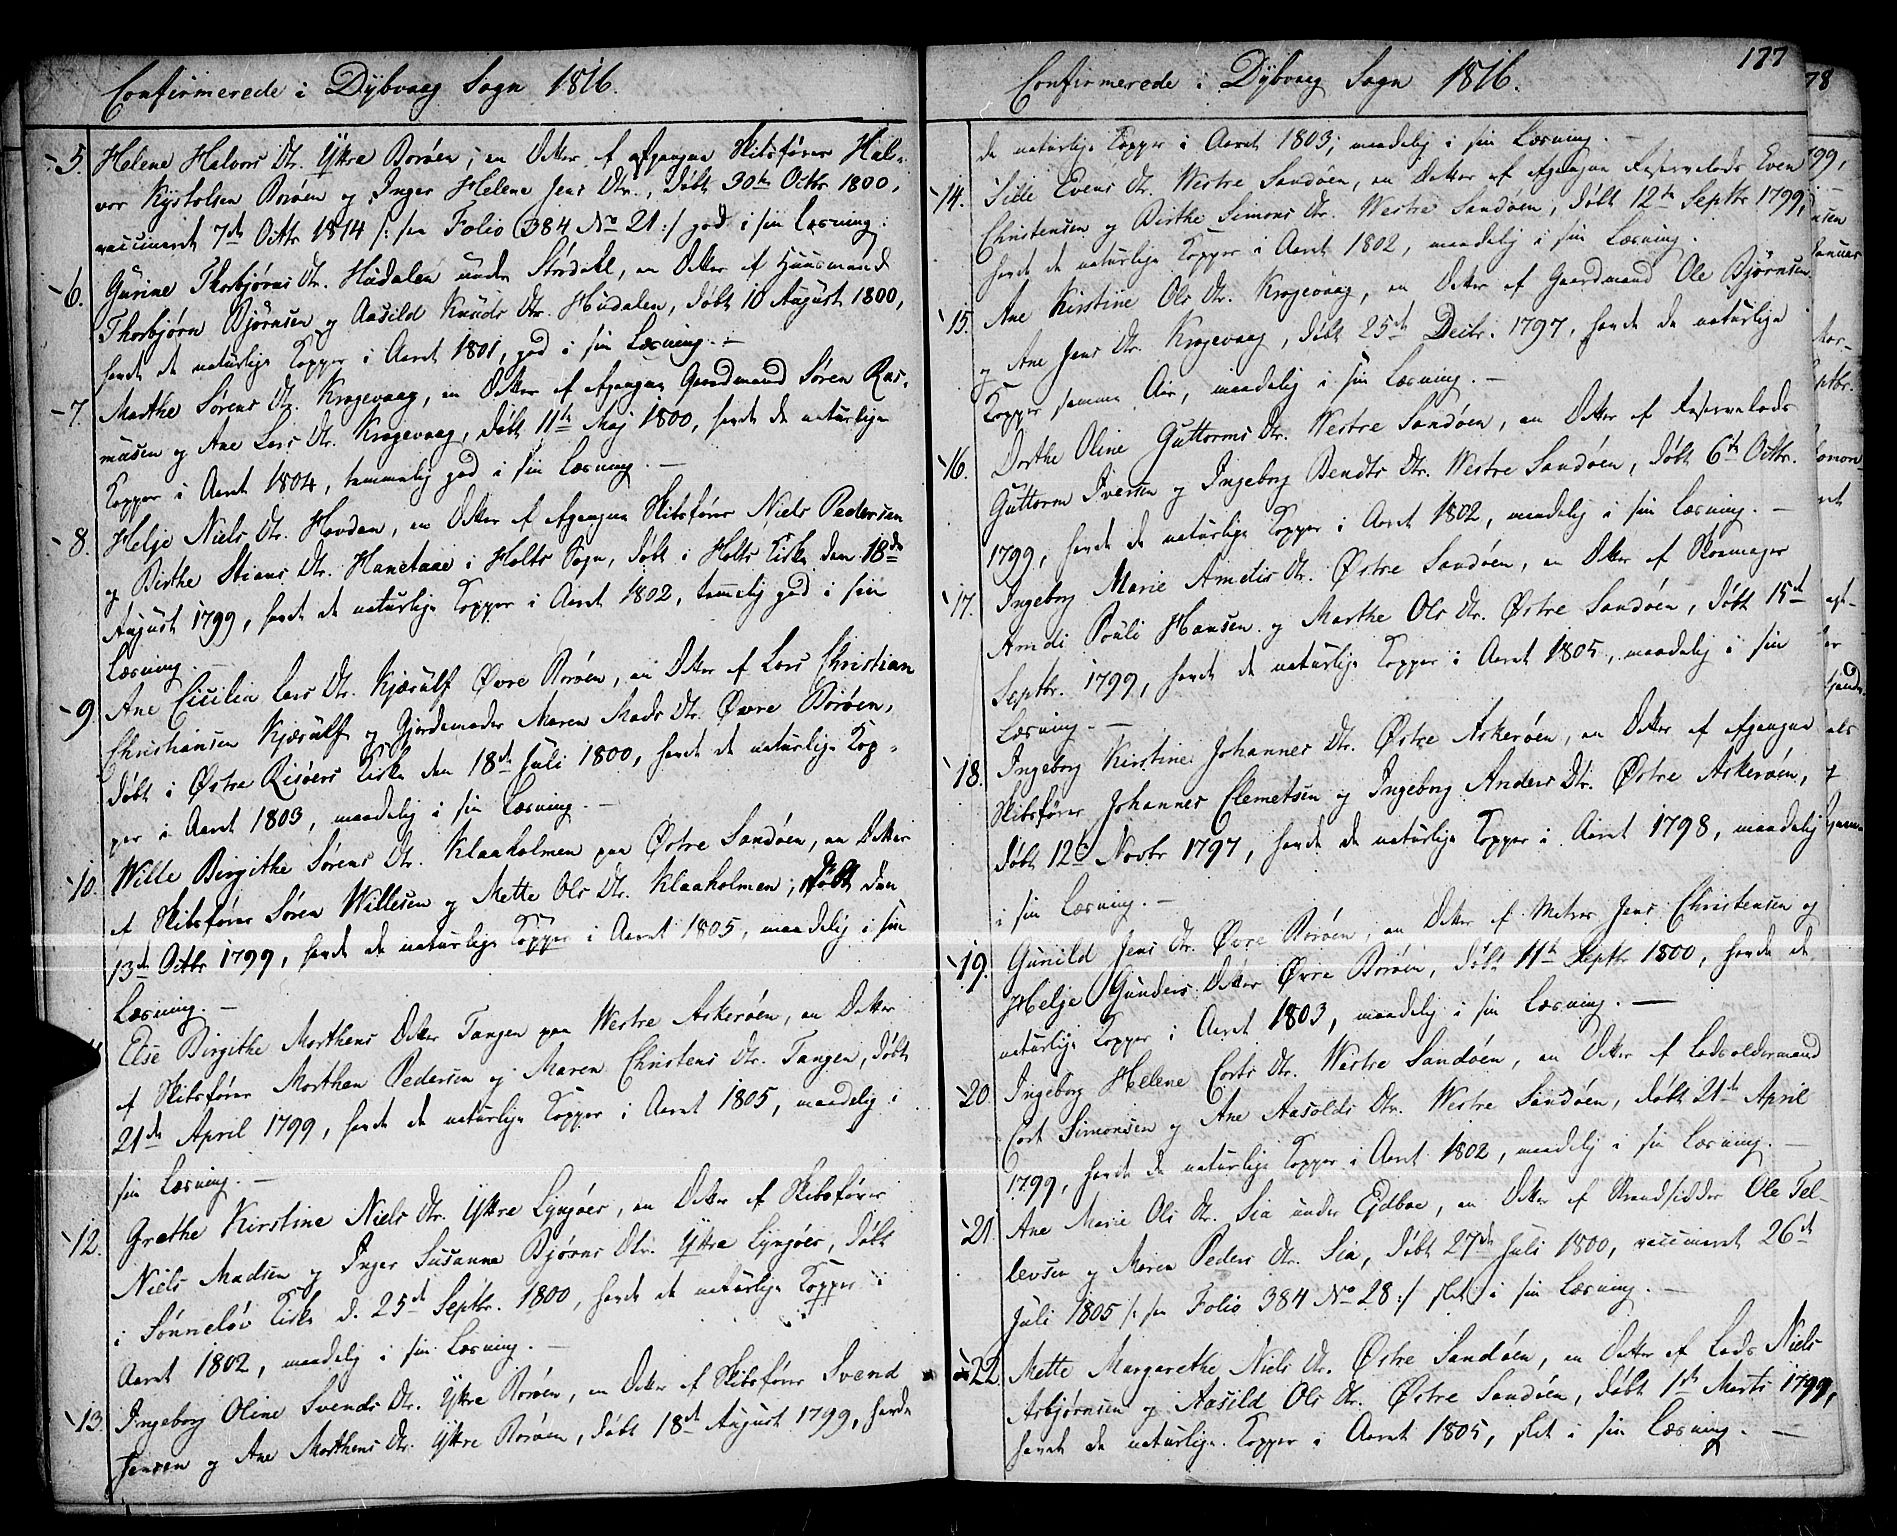 Confirmerede i Dÿbvaag Sogn 1816.
5. Helene Halvors Dtr. Ÿttre Borøen, en Dotter af afgangne Skibsfører Hal-
vor Kystolsen Borøen og Inger Helene Jens Dtr., døbt 30te Octbr 1800,
vaccineret 7de Octbr 1814 /: see Folio 384 No 21 :/ god i sin Læsning.
6. Gurine Thorbjørns Dtr. Hüdalen under Strødahl, en Dotter af Huusmand
Thorbjørn Bjørnsen og Aasild Knuds Dtr. Hüdalen, døbt 10 August 1800,
havde de naturlige Kopper i Aaret 1801, god i sin Læsning. –
7. Marthe Sørens Dtr. Krogevaag, en Dotter af afgangne Gaardmand Søren Ras-
musen og Ane Lars Dtr. Krogevaag, døbt 11te Maj 1800, havde de naturlige
Kopper i Aaret 1804, temmelig god i sin Læsning. –
8. Helje Niels Dtr. Hovden, en Dotter af afgangne Skibsfører Niels Pedersen
og Birthe Stians Dtr. Hanetaae i Holts Sogn, døbt i Holts Kirke den 18de
August 1799, havde de naturlige Kopper i Aaret 1802, temelig god i sin
Læsning. –
9. Ane Cicilia Lars Dtr. Kjærulf Øvre Borøen, en Dotter af Lars Christian
Christiansen Kjærulf og Gjordemoder Maren Mads Dtr. Øvre Borøen,
døbt i Østre Risøers Kirke den 18de Juli 1800, havde de naturlige Kop-
per i Aaret 1803, maadelig i sin Læsning. –
10. Wille Birgithe Sørens Dtr. Klaaholmen paa Østre Sandøen, en Dotter
af Skibsfører Søren Willesen og Mette Ols Dtr. Klaaholmen, døbt den
13de Octbr 1799, havde de naturlige Kopper i Aaret 1805, maadelig i sin
Læsning. –
Else Birgithe Morthens Dotter Tangen paa Westre Askerøen, en Dotter
af Skibsfører Morthen Pedersen og Maren Christens Dtr. Tangen, døbt
21de April 1799, havde de naturlige Kopper i Aaret 1805, maadelig i
sin Læsning. –
12. Grethe Kirstine Niels Dtr. Ÿttre Lyngøer, en Dotter af Skibsfører
Niels Madsen og Inger Susanna Bjørns Dtr. Ÿttre Lyngøer, døbt
i Sønneløv Kirke d. 25de Septbr. 1800, havde de naturlige Kopper i
Aaret 1802, maadelig i sin Læsning. –
13. Ingeborg Oline Svends Dtr. Ÿttre Borøen, en Dotter af Skibsfører Svend
Jensen og Ane Morthens Dtr. Ÿttre Borøen, døbt 18de August 1799, havde
177
Confirmerede i Dÿbvaag Sogn 1816.
de naturlige Kopper i Aaret 1803, maadelig i sin Læsning. –
14. Sille Evens Dtr. Westre Sandøen, en Dotter af afgangne Reservelods Even
Christensen og Birthe Simons Dtr. Westre Sandøen, døbt 12te Septbr 1799,
havde de naturlige Kopper i Aaret 1802, maadelig i sin Læsning.
15. Ane Kirstine Ols Dtr. Krogevaag, en Dotter af Gaardmand Ole Bjørnsen
og Ane Jens Dtr. Krogevaag, døbt 25de Decbr. 1797, havde de naturlige
Kopper samme Aar, maadelig i sin Læsning. –
16. Dorthe Oline Guttorms Dtr. Westre Sandøen, en Dotter af Reservelods
Guttorm Iversen og Ingeborg Bendts Dtr. Westre Sandøen, døbt 6te Octbr.
1799, havde de naturlige Kopper i Aaret 1802, maadelig i sin Læsning. –
17. Ingeborg Marie Amdis Dtr. Østre Sandøen, en Dotter af Skomager
Amdi Pouli Hansen og Marthe Ols Dtr. Østre Sandøen, døbt 15de
Septbr. 1799, havde de naturlige Kopper i Aaret 1805, maadelig i sin
Læsning. –
18. Ingeborg Kirstine Johannes Dtr. Østre Askerøen, en Dotter af afgangne
Skibsfører Johannes Clemetsen og Ingeborg Anders Dtr. Østre Askerøen,
døbt 12te Novbr 1797, havde de naturlige Kopper i Aaret 1798, maadelig
i sin Læsning. –
19. Gunild Jens Dtr. Øvre Borøen, en Dotter af Matros Jens Christensen og
Helje Gunders Dotter Øvre Borøen, døbt 11te Septbr 1800, havde de
naturlige Kopper i Aaret 1803, maadelig i sin Læsning. –
20. Ingeborg Helene Corts Dtr. Westre Sandøen, en Dotter af Lodsoldermand
Cort Simonsen og Ane Aasolds Dtr. Westre Sandøen, døbt 21de April
1799, havde de naturlige Kopper i Aaret 1802, maadelig i sin Læsning. –
21. Ane Marie Ols Dtr. Sia under Ejdboe, en Dotter af Strandsidder Ole Tel-
levsen og Maren Peders Dtr. Sia, døbt 27de Juli 1800, vaccineret 26de
Juli 1805 /: see Folio 384 No 28 :/ slet i sin Læsning. –
22. Mette Margarethe Niels Dtr. Østre Sandøen, en Dotter af Lods Niels
Asbjørnsen og Aasild Ols Dtr. Østre Sandøen, døbt 1ste Marts 1799,
havde de naturlige Kopper i Aaret 1805, slet i sin Læsning. –
78